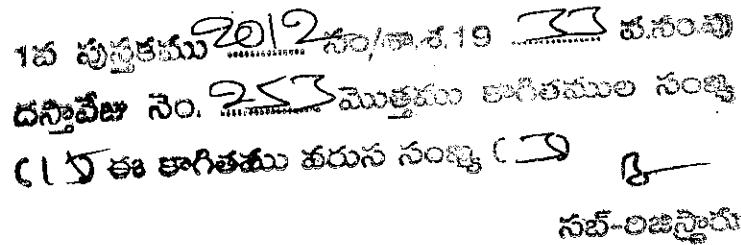 1వ పుస్తకము 2012 సం/శా.శ.19 33 వ.సం.పు
దస్తావేజు నెం. 253 మొత్తము కాగితముల సంఖ్య
(15 ఈ కాగితము వరుస సంఖ్య (3)
సబ్-రిజిస్ట్రారు